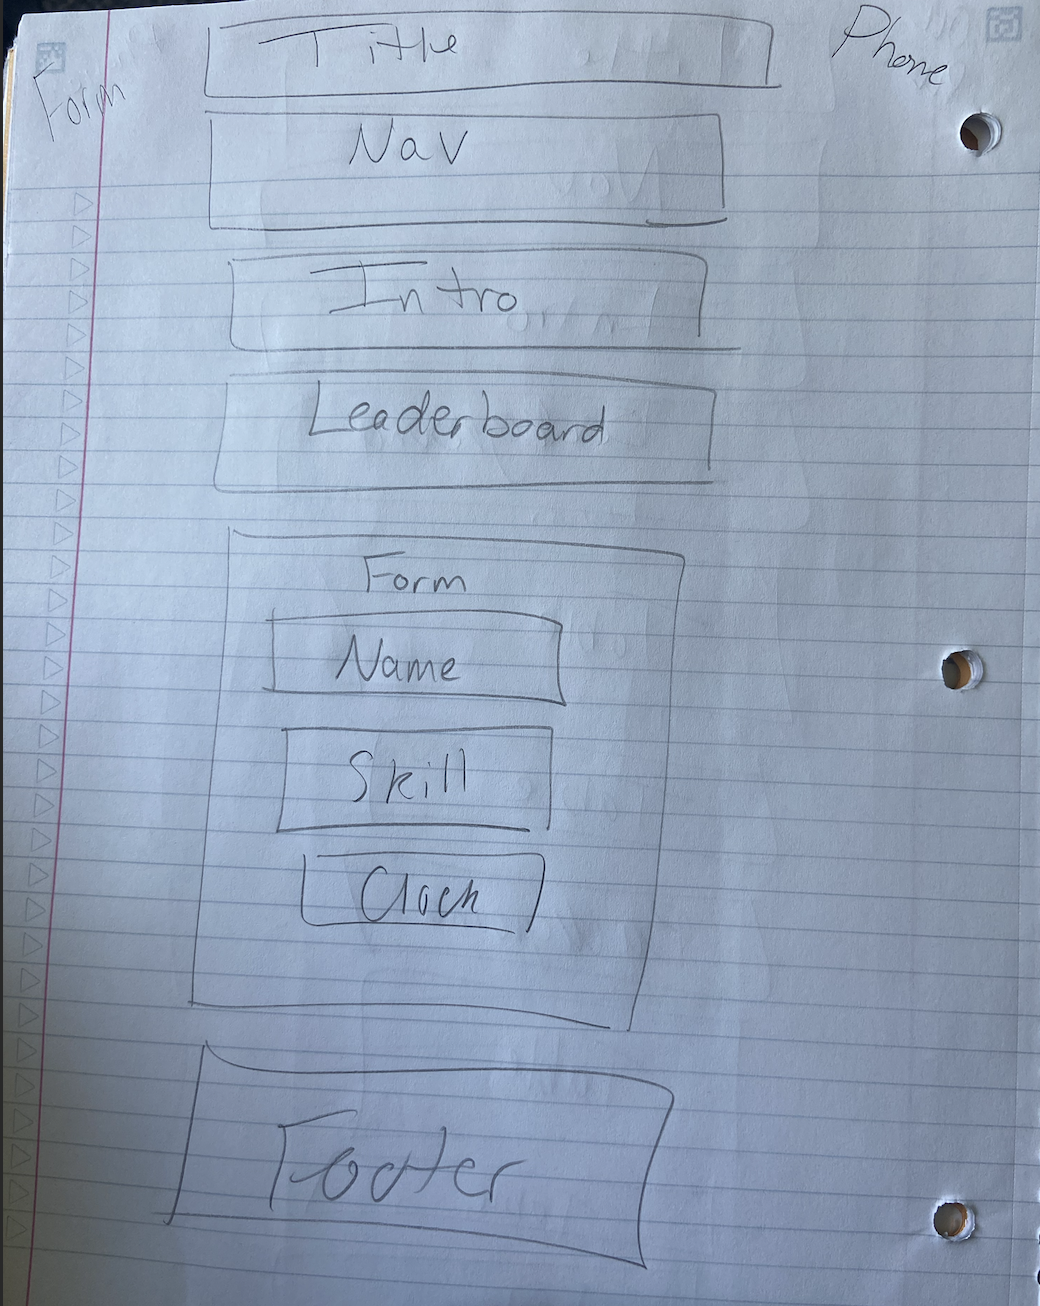 Form
Title
Phone
Nav
Intro
Leaderboard
Form
Name
Skill
Clock
Footer